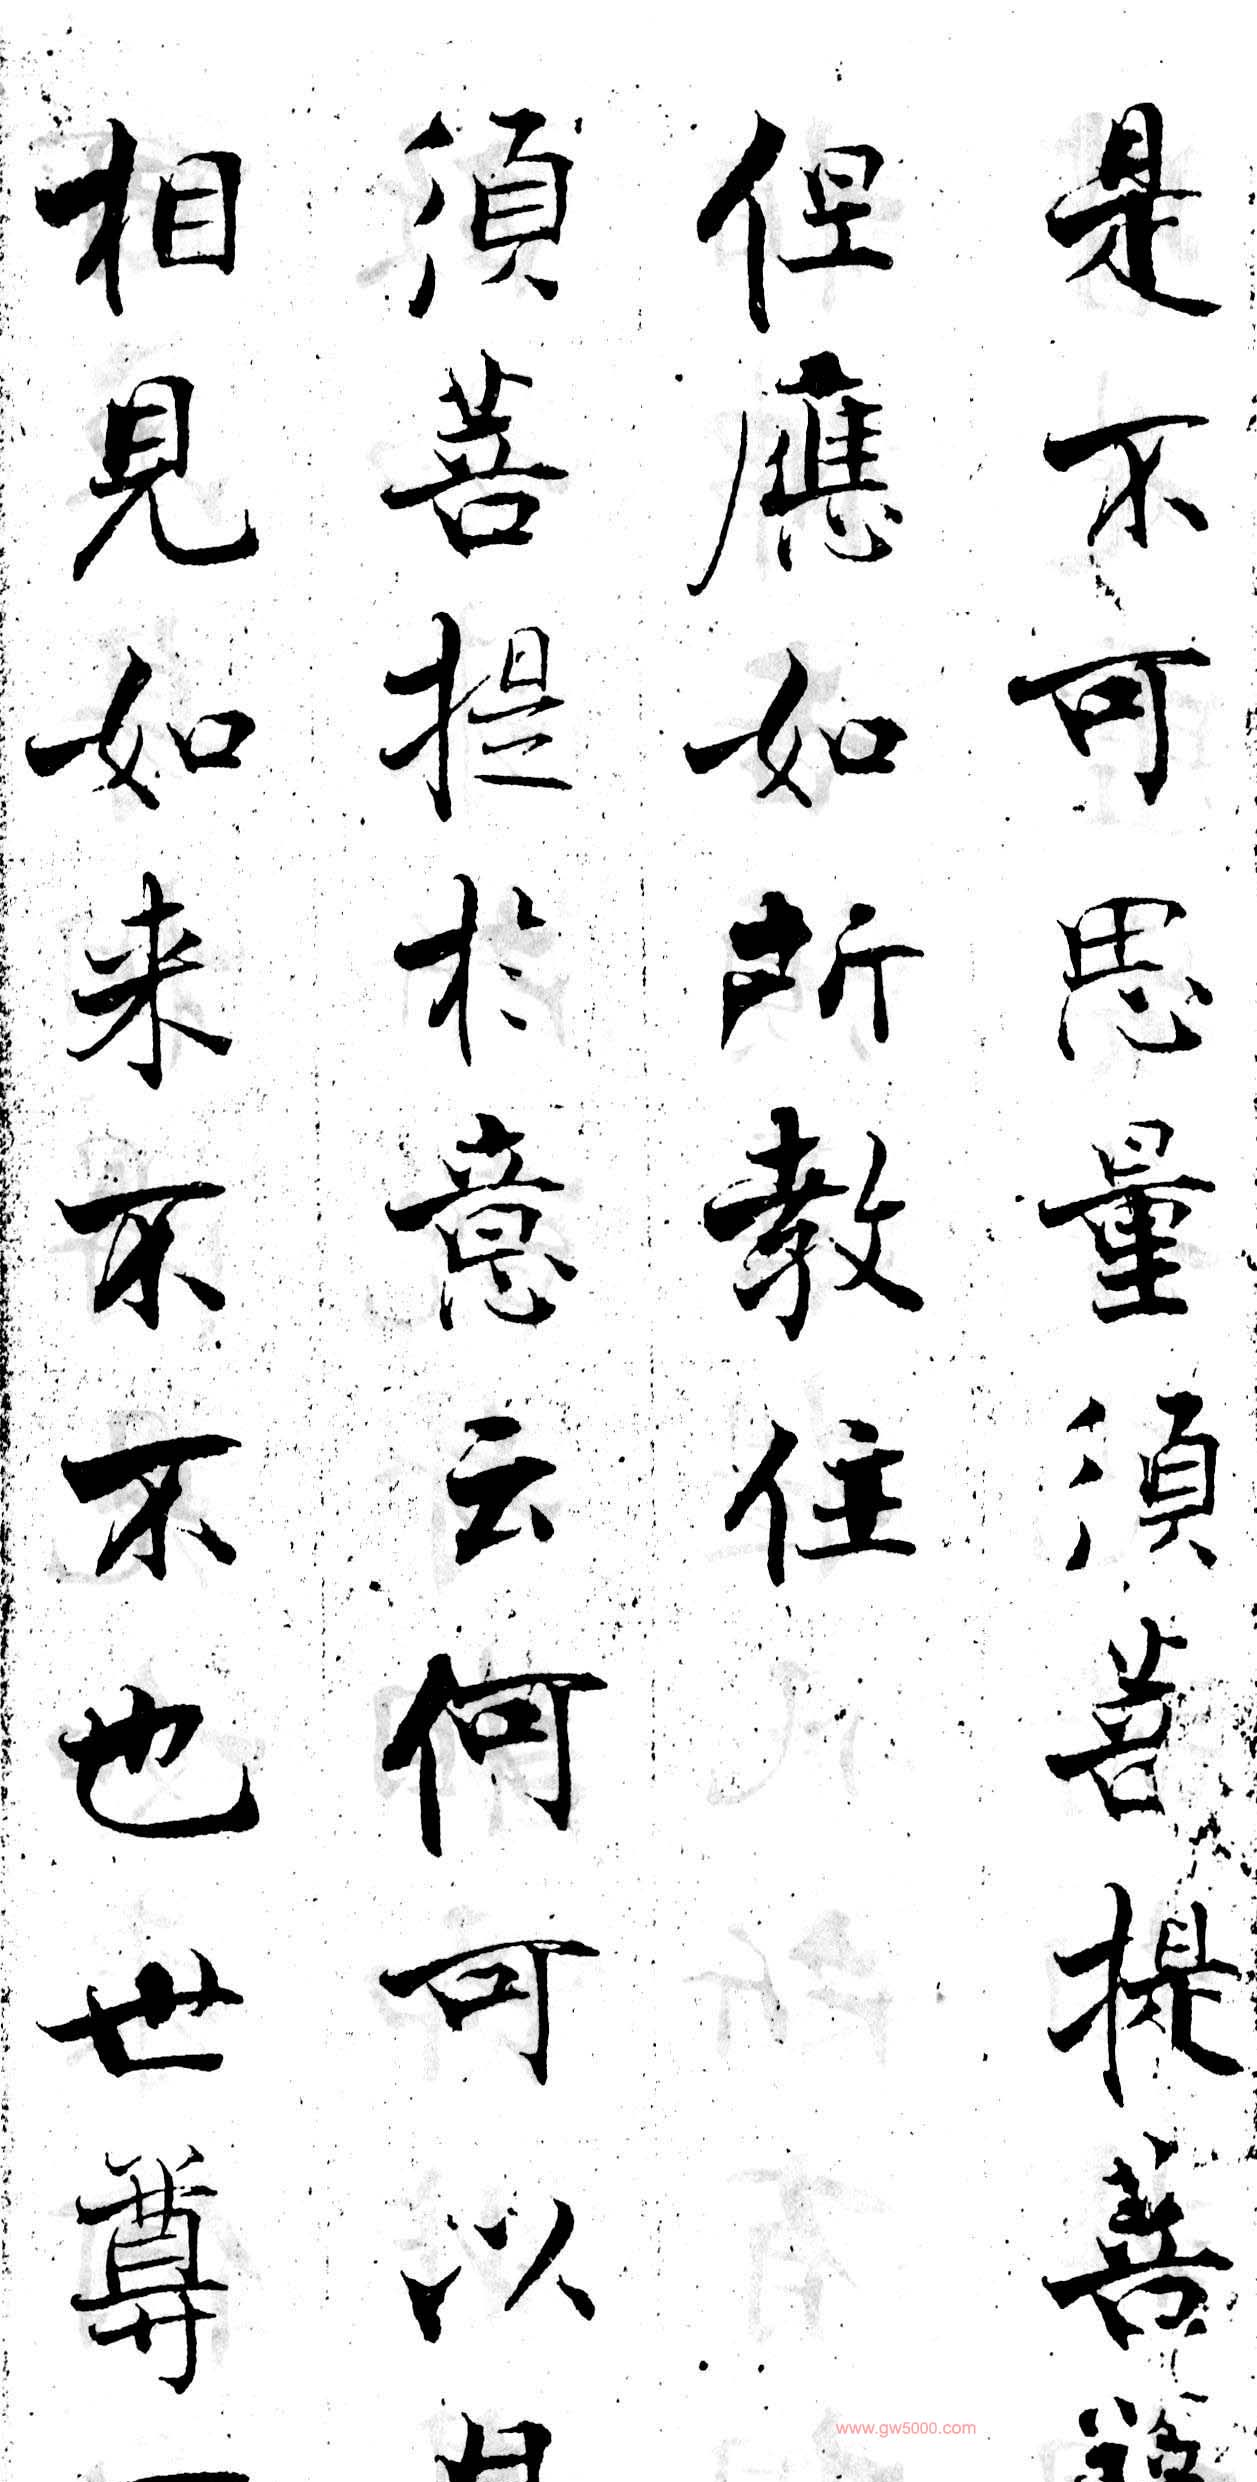 是不可思量須菩提菩
但應如所教住
須菩提於意云何可以
相見如来不不也世尊
www.gw5000.com